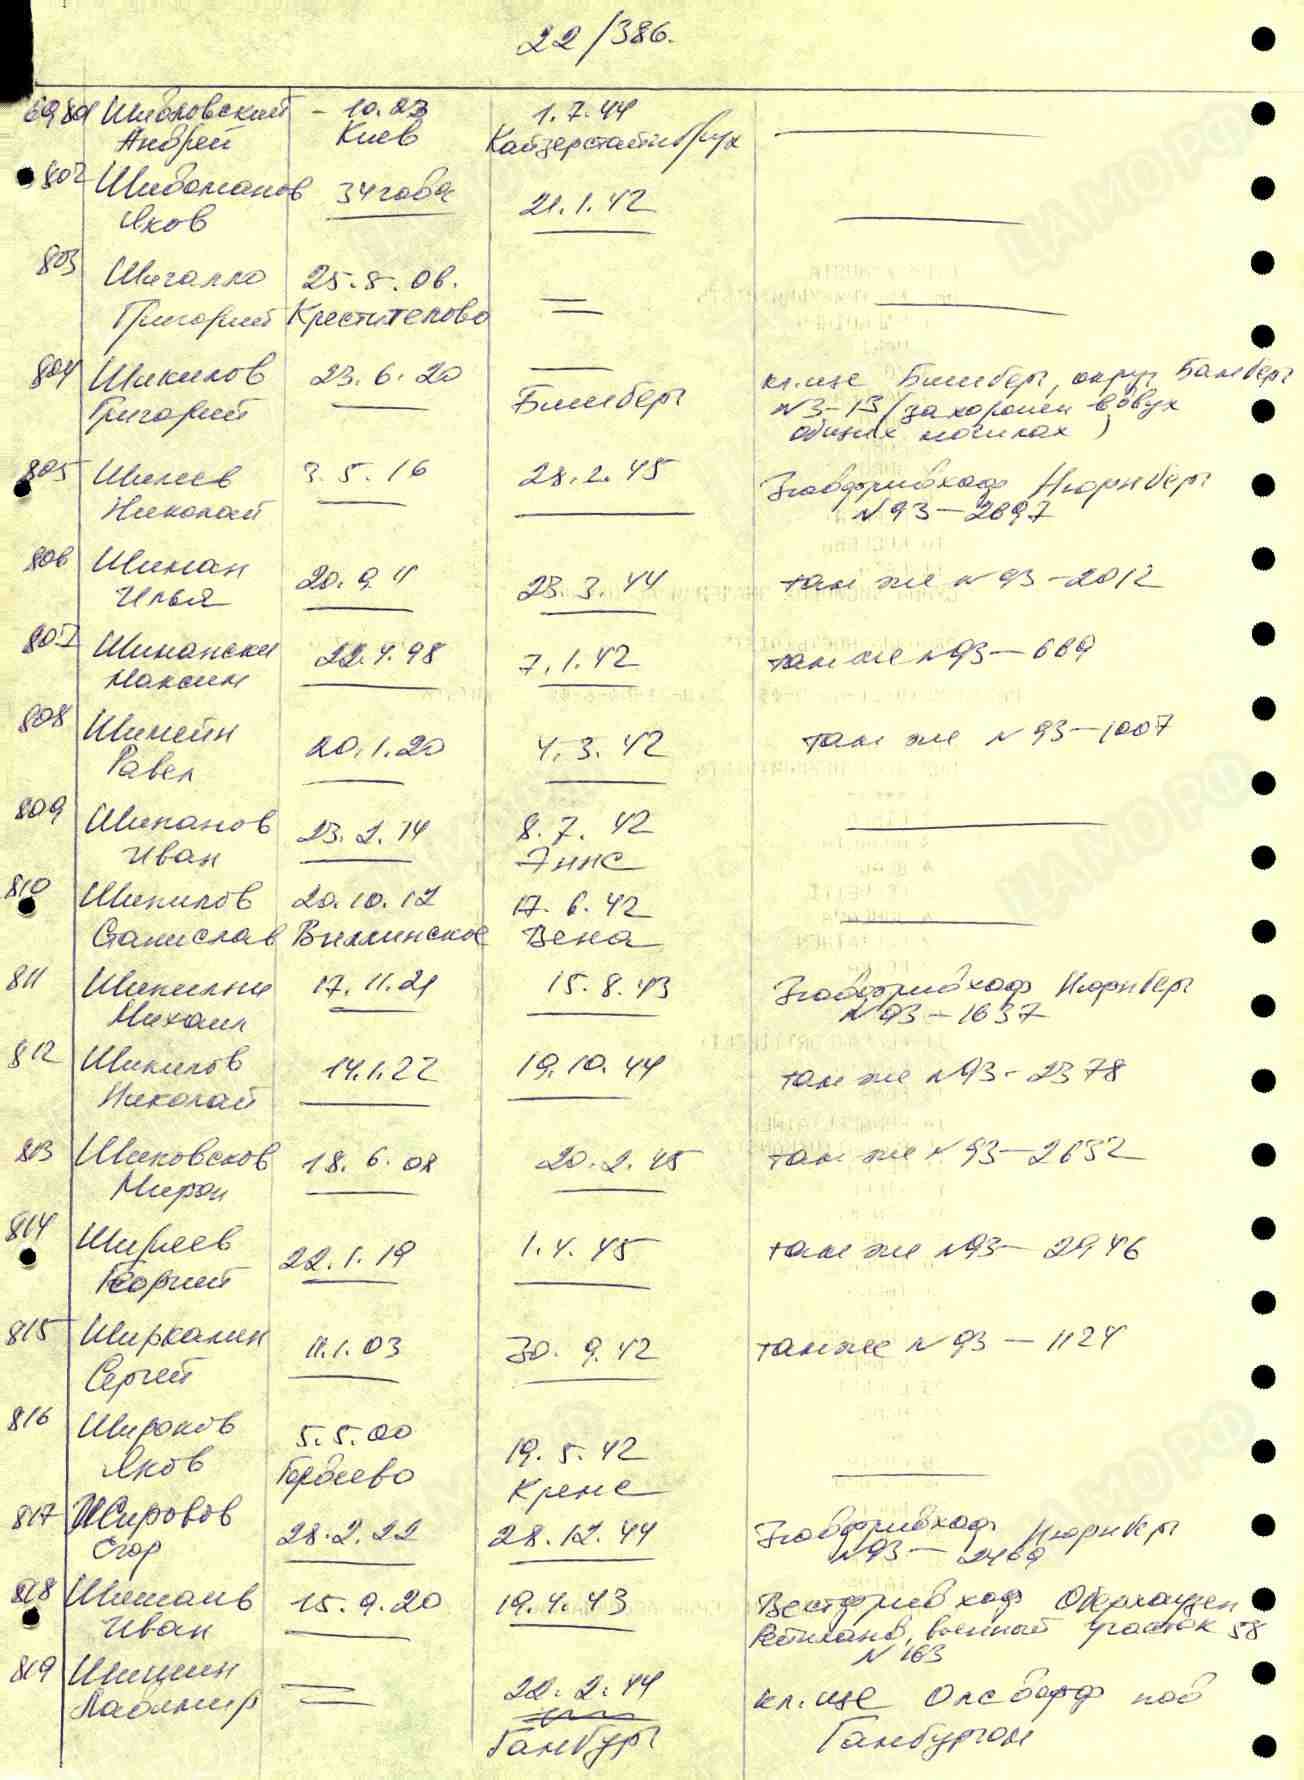 22/386.
69801 Шибловский - 10.23 1.7.44
Андрей Киев Кайзерстайнбрух
802 Шибаманов 34 года 21.1.42
Яков
803 Шигалло 25.8.06.
Григорий Крестителово
804 Шикилов 23.6.20 кл.ище Бишберг, округ Бамберг
Григорий Бишберг №3-13 (захоронен в двух
общих могилах)
805 Шилев 3.5.16 28.2.45 Зюдфридхоф Нюрнберг
Николай №93-2697
806 Шиман 20.9.11 23.3.44 там же №93-2012
Илья
807 Шимански 22.4.98 7.1.42 там же №93-669
Максим
808 Шимейн 20.1.20 4.3.42 там же №93-1007
Равел
809 Шипанов 23.2.14 8.7.42
Иван Эннс
810 Шипилов 20.10.12 17.6.42
Станислав Виллинское Вена
811 Шипилни 17.11.21 15.8.43 Зюдфридхоф Нюрнберг
Михаил №93-1637
812 Шипилов 14.1.22 19.10.44 там же №93-2378
Николай
813 Шиповсков 18.6.08 20.2.45 там же №93-2652
Мирон
814 Ширяев 22.1.19 1.4.45 там же №93-2946
Георгий
815 Ширкалин 11.1.03 30.9.42 там же №93-1124
Сергей
816 Широков 5.5.00 19.5.42
Яков Гордеево Кремс
817 Шировов 28.2.22 28.12.44 Зюдфридхоф Нюрнберг
Егор №93-2469
818 Шишаив 15.9.20 19.4.43 Вестфридхоф Оберхаузен
Иван военный участок 58
№163
819 Шишин 22.2.44 кл.ище Олсдорф под
Ладимир Гамбург Гамбургом
ЦАМОРФ